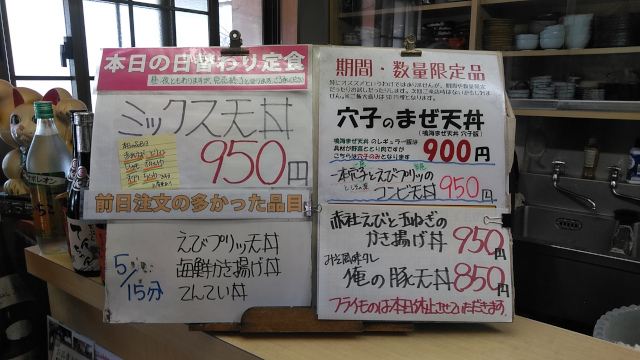 本日の日替わり定食
ミックス天丼
950円
前日注文の多かった品目
5/15分
えびプリッ天丼
海鮮かき揚げ丼
てんてい丼
期間・数量限定品
穴子のまぜ天丼
(鳴海まぜ天丼 穴子版)
鳴海まぜ天丼 のレギュラー版は
具材が野菜ととり肉ですが
こちらは穴子のみとなります
900円
一本穴子とえびプリッの
コンビ天丼 950円
赤社えびと玉ねぎの
かき揚げ丼 950円
みそ風味タレ
俺の豚天丼 850円
フライものは本日休止させていただきます。